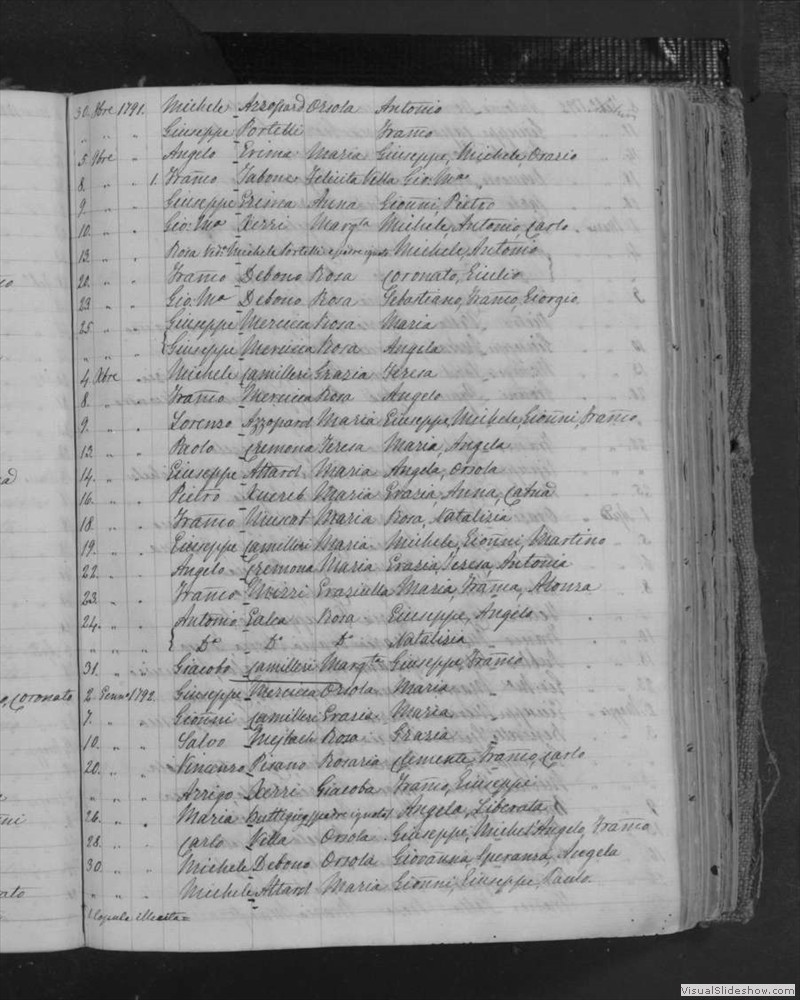 30. 8bre 1791. Michele Azzopard Orsola Antonio
" " " Giuseppe Portelli Franco
5. 9bre " Angelo Erima Maria Giuseppe, Michele Orazio
8. " " 1. Franco Tabone Felicita Villa Gio: Ma
9. " " Giuseppe Erima Anna Gionni, Pietro
10. " " Gio: Ma Xerri Margta Michele, Antonio Carlo
13. " " Rosa Michele Portelli Michele, Antonio
20. " " Franco Debono Rosa Coronato, Giulio
23. " " Gio: Ma Debono Rosa Sebastiano, Franco, Giorgio
25. " " Giuseppe Mercieca Rosa Maria
" " " Giuseppe Mercieca Rosa Angela
4. Xbre " Michele Camilleri Grazia Teresa
8. " " Franco Mercieca Rosa Angelo
9. " " Lorenzo Azzopard Maria Giuseppe, Michele, Gionni, Franco
13. " " Paolo Cremona Teresa Maria, Angela
14. " " Giuseppe Attard Maria Angela, Orsola
16. " " Pietro Xuereb Maria Grazia, Anna, Catna
18. " " Franco Muscat Maria Rosa, Natalizia
19. " " Giuseppe Camilleri Maria Michele, Gionni, Martino
22. " " Angelo Cremona Maria Grazia, Teresa, Antonia
23. " " Franco Mizzi Graziulla Maria, Franca, Alonza
24. " " Antonio Galea Rosa Giuseppe, Angelo
" " Do Do Do Natalizia
31. " " Giacobo Camilleri Margta Giuseppe, Franco
2. Genno 1792. Giuseppe Mercieca Orsola Maria
7. " " Gionni Camilleri Grazia Maria
10. " " Salvo Mejlach Rosa Grazia
20. " " Vincenzo Pisano Rosaria Clemente, Franco, Carlo
" " Arrigo Xerri Giacoba Franco, Giuseppe
26. " " Maria Buttigieg padre ignoto Angela, Liberata
28. " " Carlo Villa Orsola Giuseppe, Michel'Angelo, Franco
30. " " Michele Debono Orsola Giovanna, Speranza, Angela
" " " Michele Attard Maria Gionni, Giuseppe, Paulo
VisualSlideshow.com